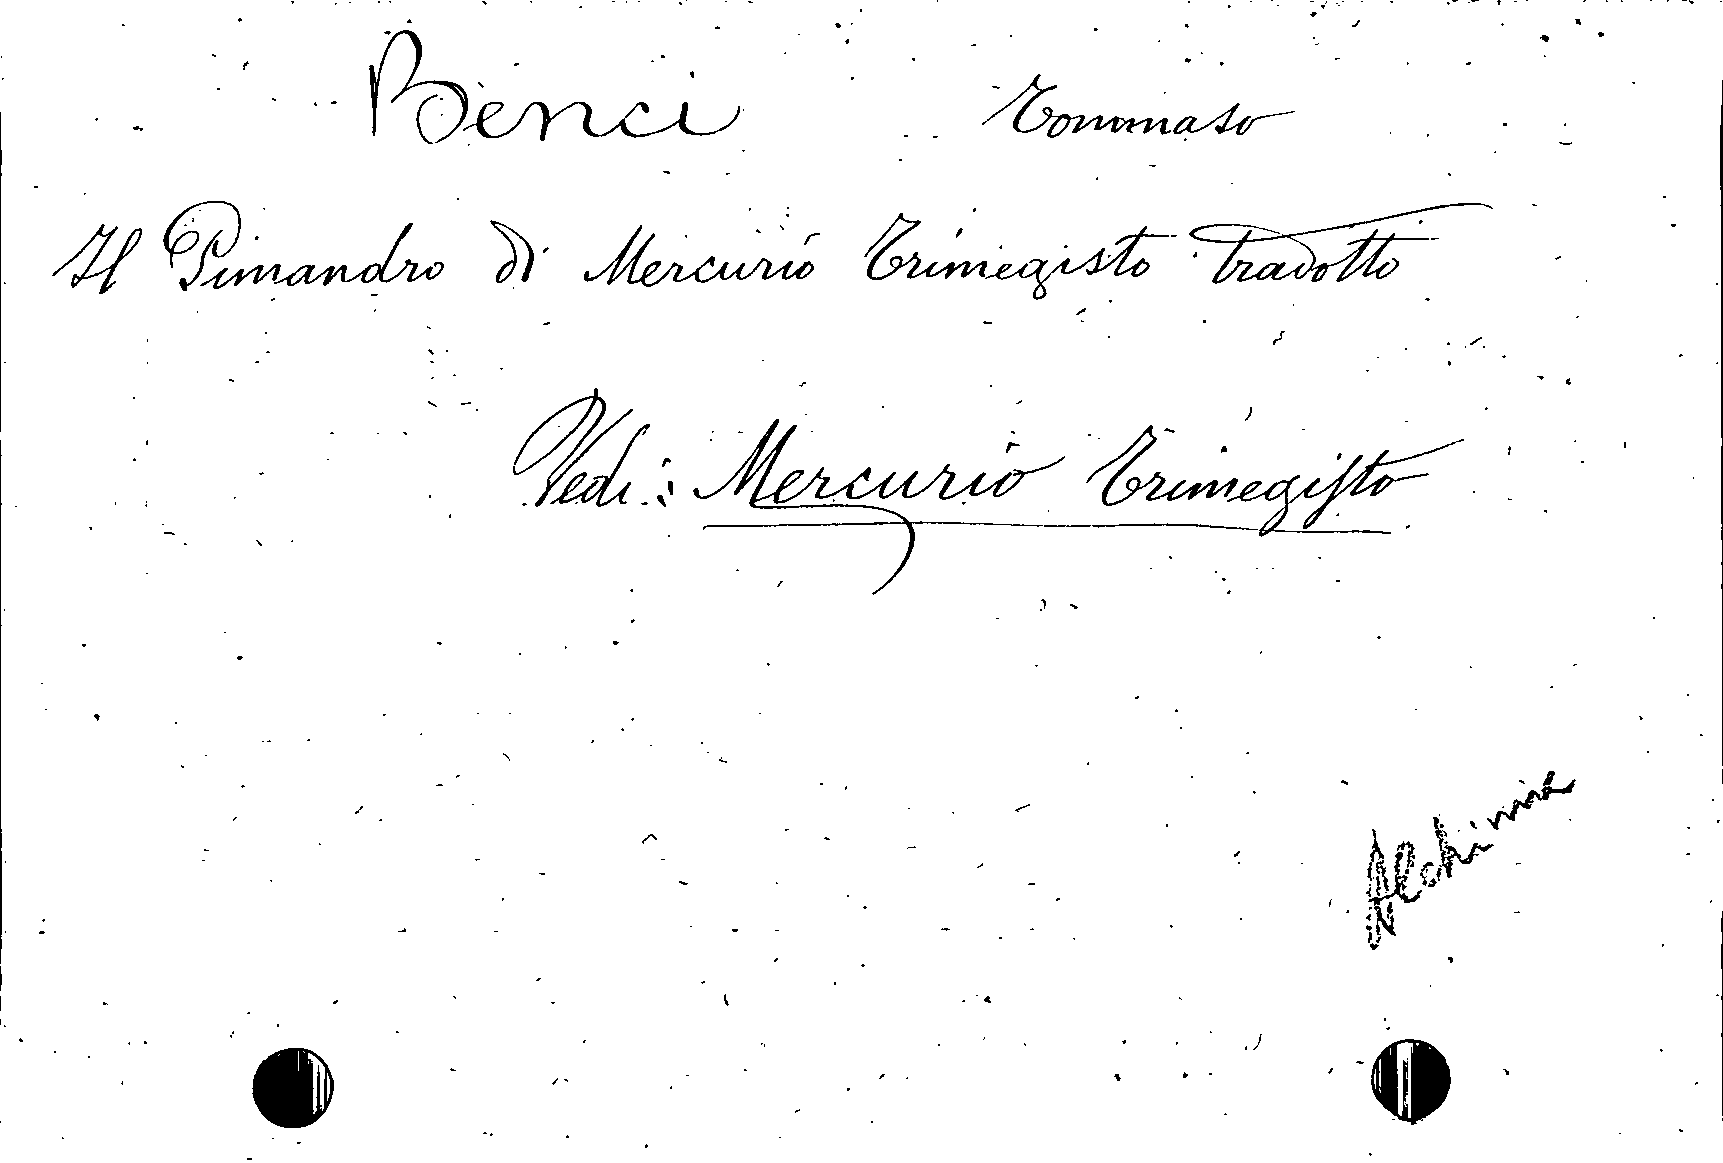 Benci Tommaso
Il Pimandro di Mercurio Trimegisto tradotto
Vedi: Mercurio Trimegisto
Alchimia